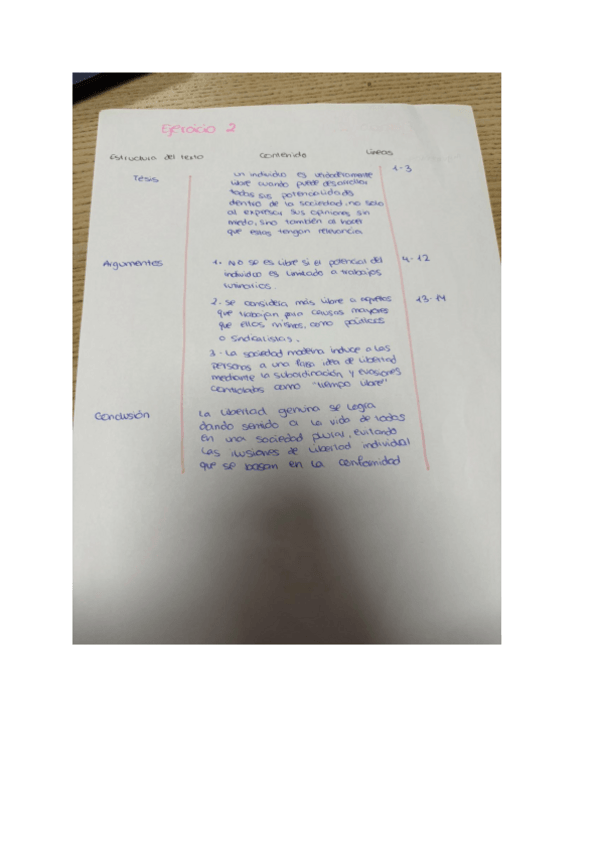 Ejercicio 2
Estructura del texto contenido Líneas
Tésis
un individuo es verdaderamente 1-3
libre cuando puede desarrollar
todas sus potencialidades
dentro de la sociedad, no solo
al expresar sus opiniones sin
miedo, sino también al hacer
que estas tengan relevancia
Argumentos
1. NO se es libre si el potencial del 4-12
individuo es limitado a trabajos
rutinarios.
2. se considera más libre a aquellos 13-14
que trabajan para causas mayores
que ellos mismos, como políticos
o sindicalistas.
3. La sociedad moderna induce a las
personas a una falsa idea de libertad
mediante la subordinación y evasiones
controladas como "tiempo libre"
Conclusión
La libertad genuina se logra
dando sentido a la vida de todos
en una sociedad plural, evitando
las ilusiones de libertad individual
que se basan en la conformidad